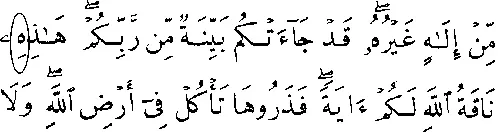 مِّنْ إِلَـٰهٍ غَيْرُهُۥۖ قَدْ جَآءَتْكُم بَيِّنَةٌ مِّن رَّبِّكُمْۖ هَـٰذِهِۦ
نَاقَةُ ٱللَّهِ لَكُمْ ءَايَةًۖ فَذَرُوهَا تَأْكُلْ فِىٓ أَرْضِ ٱللَّهِۖ وَلَا